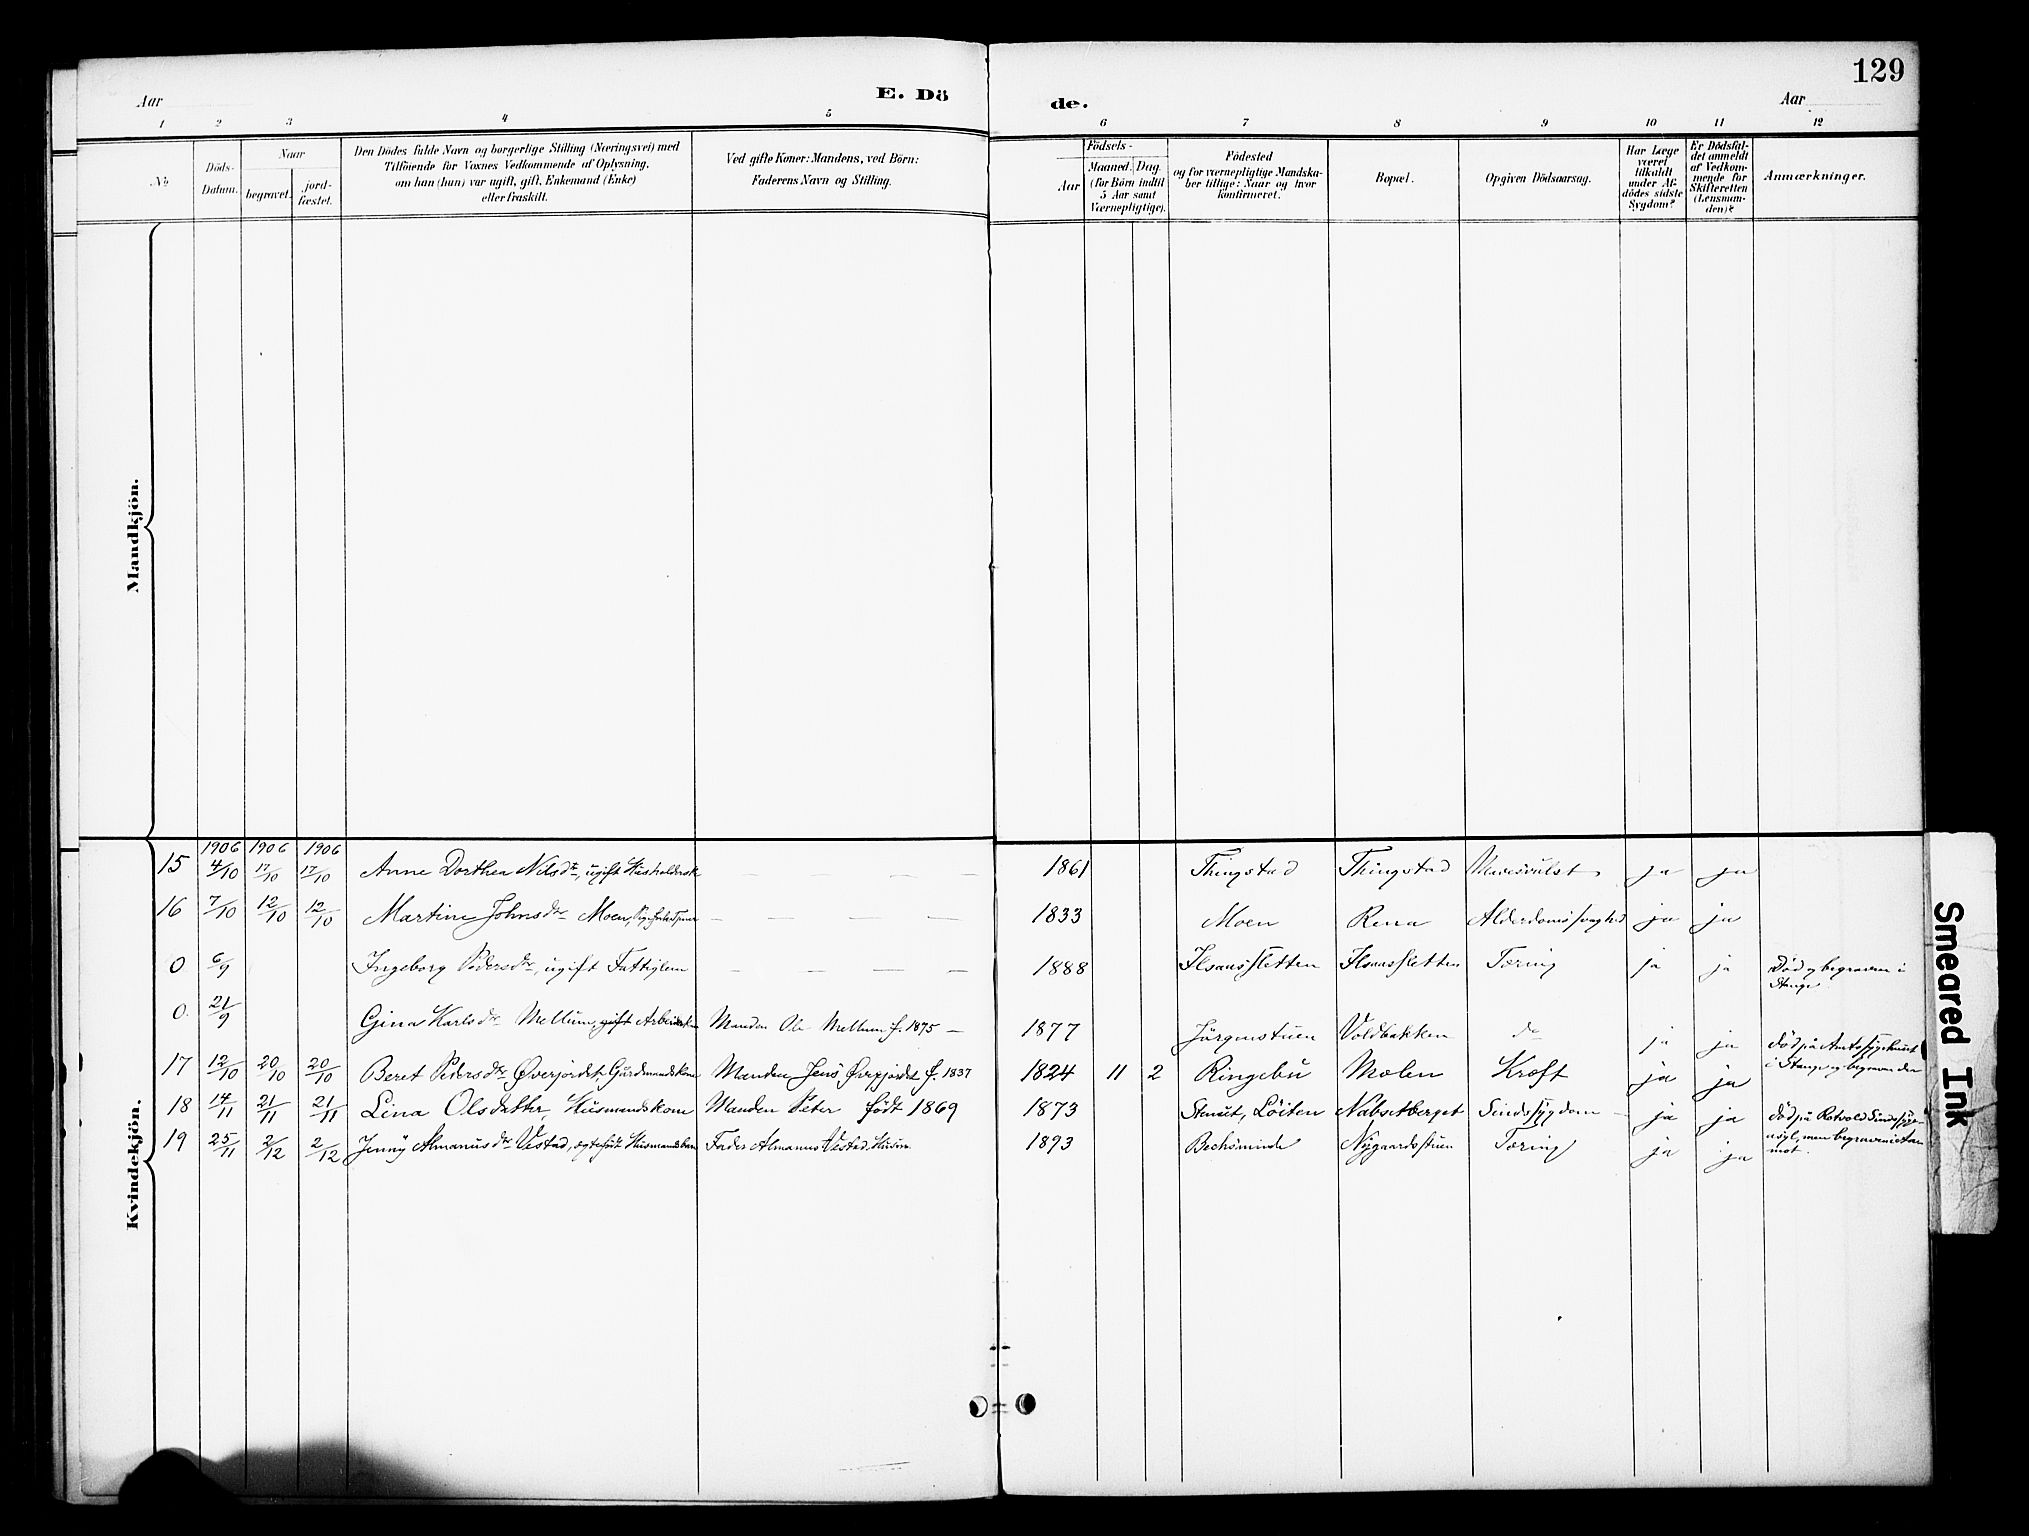 129
Aar
E. Dö
de.
Aar
1 2 3 4 5 6 7 8 9 10 11 12
No
Döds-Datum.
Naar
begravet.
jord-fæstet.
Den Dödes fulde Navn og borgerlige Stilling (Næringsvei) med
Tilföiende for Voxnes Vedkommende af Oplysning,
om han (hun) var ugift, gift, Enkemand (Enke)
eller fraskilt.
Ved gifte Koner: Mandens, ved Börn:
Faderens Navn og Stilling.
Födsels-
Aar
Maaned. Dag.
(for Börn indtil
5 Aar samt
Værnepligtige).
Födested
og for værnepligtige Mandska-
ber tillige: Naar og hvor
konfirmeret.
Bopæl.
Opgiven Dödsaarsag.
Har Læge
været
tilkaldt
under Af-
dödes sidste
Sygdom?
Er Dödsfal-
det anmeldt
af Vedkom-
mende for
Skifteretten
(Lensman-
den)?
Anmærkninger.
Mandkjön.
Kvindekjön.
1906 1906 1906
15 4/10 17/10 17/10 Anne Dorthea Nilsdtr, ugift 1861 Thingstad Thingstad ja ja
16 7/10 12/10 12/10 Martine Johnsdtr Moen, — — — — 1833 Moen Rena ja ja
0 6/9 Ingeborg Pedersdtr, ugift Fattiglem — — — — 1888 Ilsaassletten Ilsaassletten Tæring ja ja Död og begraven i
Stange.
0 21/9 Gina Karlsdtr Mellum, gift Manden Ole Mellum f. 1875 — 1877 Jörgenstuen Voldbakken do ja ja död på Amtssygehuset
i Stange og begraven der
17 12/10 20/10 20/10 Beret Pedersdtr Øverjordet, Gårdmandskone Manden Jens Øverjordet f. 1837 1824 11 2 Ringebu Molen Kræft ja ja
18 14/11 21/11 21/11 Lina Olsdatter, Husmandskone Manden Peter født 1869 1873 Løiten Nabsetberget Sindssygdom ja ja död på Rotvold Sindssyge-
asyl, men begraven i Aa-
mot.
19 25/11 2/12 2/12 Jenny Almanusdtr Vestad, ægtefødt Husmandsbarn Fader Almanus Vestad, Husm. 1893 Bechsminde Nygaardsstuen Tæring ja ja
Smeared Ink